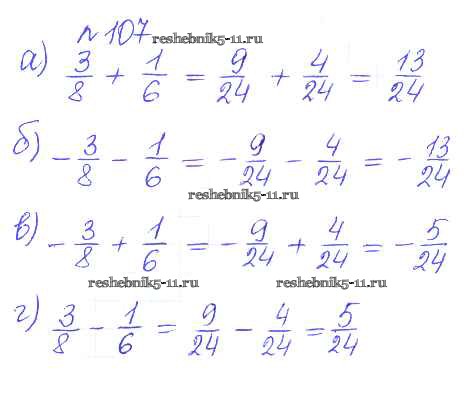 № 107
reshebnik5-11.ru
а) 3/8 + 1/6 = 9/24 + 4/24 = 13/24
б) - 3/8 - 1/6 = - 9/24 - 4/24 = - 13/24
reshebnik5-11.ru
в) - 3/8 + 1/6 = - 9/24 + 4/24 = - 5/24
reshebnik5-11.ru reshebnik5-11.ru
г) 3/8 - 1/6 = 9/24 - 4/24 = 5/24